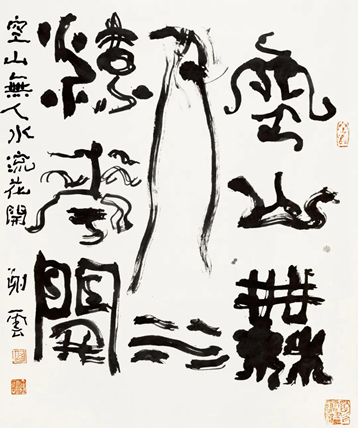 空山無
人水
流花開
空山無人水流花開 謝雲